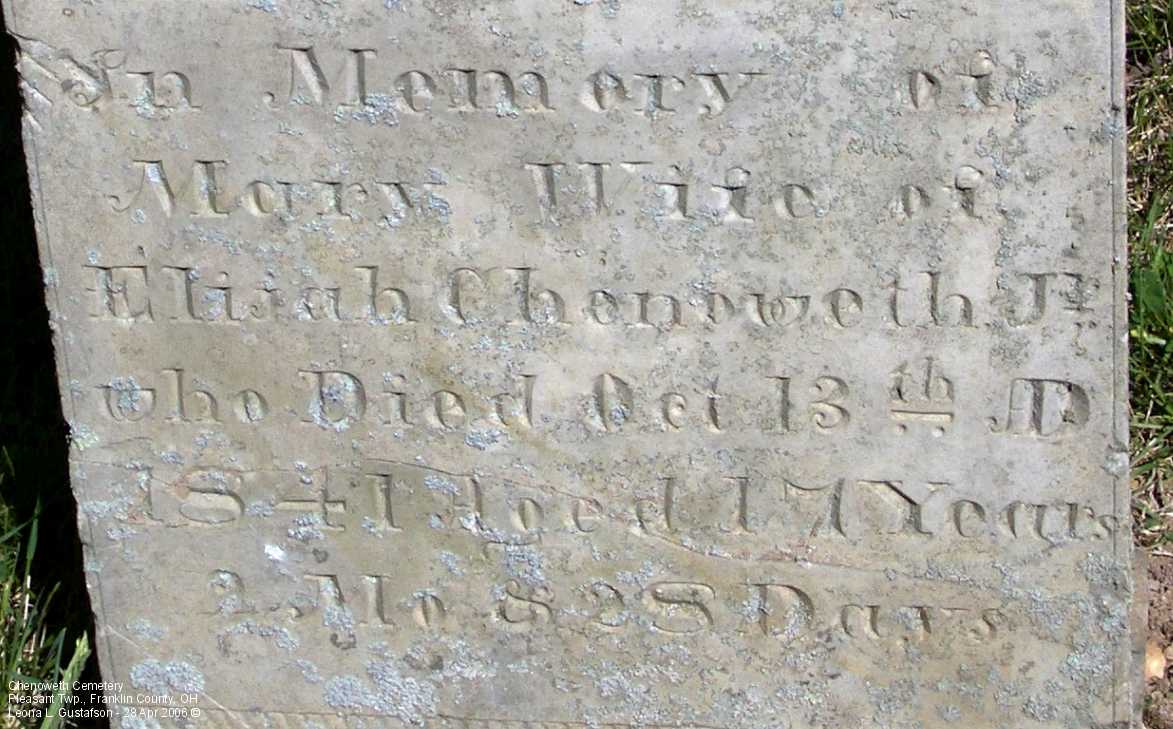 In Memory of
Mary Wife of
Elijah Chenoweth Jr
who Died Oct 13th AD
1841 Aged 17 Years
2 Mo & 28 Days
Chenoweth Cemetery
Pleasant Twp., Franklin County, OH
Leona L. Gustafson - 28 Apr 2006 ©